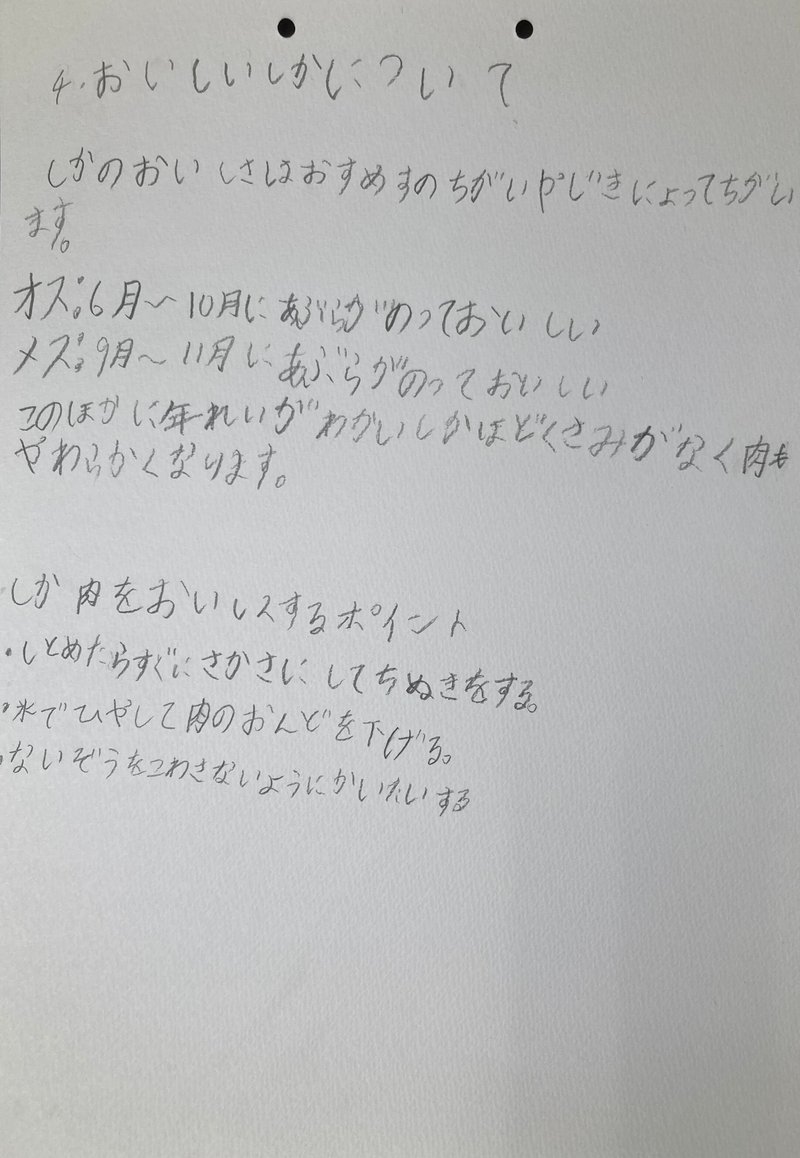 4.おいしいしかについて
しかのおいしさはおすめすのちがいやじきによってちがい
ます。
オス:6月〜10月にあぶらがのっておいしい
メス:9月〜11月にあぶらがのっておいしい
このほかに年れいがわかいしかほどくさみがなく肉も
やわらかくなります。
しか肉をおいしくするポイント
・しとめたらすぐにさかさにしてちぬきをする。
・氷でひやして肉のおんどを下げる。
・ないぞうをこわさないようにかいたいする